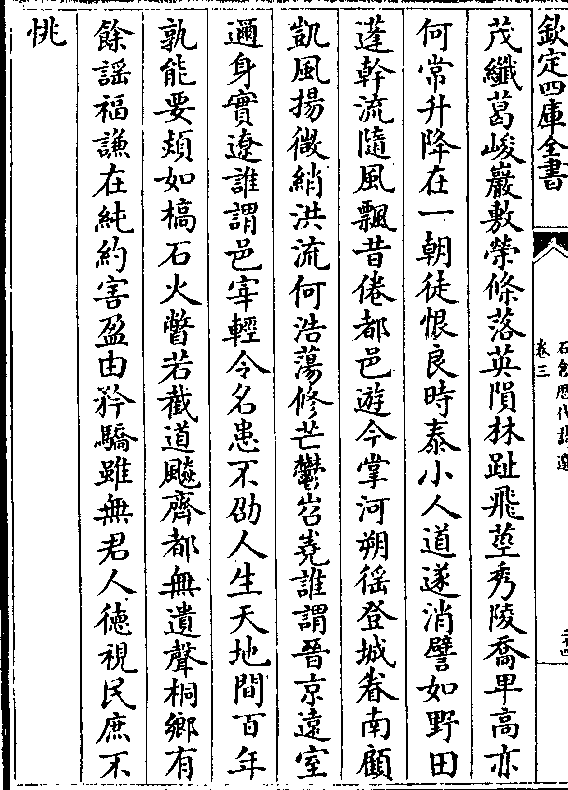 欽定四庫全書
石倉歷代詩選
卷三
茂纖葛峻巖敷榮條落英隕林趾飛莖秀陵喬卑高亦
何常升降在一朝徒恨良時泰小人道遂消譬如野田
蓬斡流隨風飄昔倦都邑遊今掌河朔徭登城眷南顧
凱風揚微綃洪流何浩蕩修芒鬱岧嶤誰謂晉京遠室
邇身實遼誰謂邑宰輕令名患不劭人生天地間百年
孰能要熲如槁石火瞥若截道飇齊都無遺聲桐鄉有
餘謡福謙在純約害盈由矜驕雖無君人徳視民庶不
恌